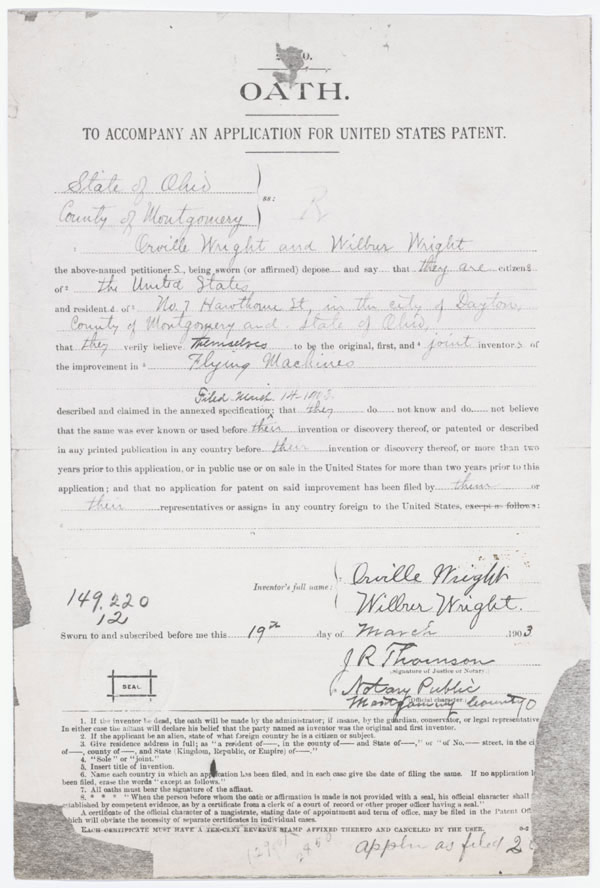 OATH.
TO ACCOMPANY AN APPLICATION FOR UNITED STATES PATENT.
State of Ohio
ss:
County of Montgomery
R
Orville Wright and Wilbur Wright
the above-named petitioners, being sworn (or affirmed) depose and say that they are citizens
of the United States
and residents of No. 7 Hawthorne St, in the city of Dayton,
County of Montgomery and State of Ohio,
that they verily believe themselves to be the original, first, and joint inventors of
the improvement in Flying Machines
Filed March
described and claimed in the annexed specification; that they do not know and do not believe
that the same was ever known or used before their invention or discovery thereof, or patented or described
in any printed publication in any country before their invention or discovery thereof, or more than two
years prior to this application, or in public use or on sale in the United States for more than two years prior to this
application; and that no application for patent on said improvement has been filed by them or
their representatives or assigns in any country foreign to the United States, except as follows:
Orville Wright
Inventor's full name:
Wilbur Wright.
149,220
12
Sworn to and subscribed before me this 19th day of March, 1903
J R Thomson
Signature of Justice or Notary.
SEAL
Notary Public
(Official character.)
Montgomery County O
1. If the inventor be dead, the oath will be made by the administrator; if insane, by the guardian, conservator, or legal representative
In either case the affiant will declare his belief that the party named as inventor was the original and first inventor.
2. If the applicant be an alien, state of what foreign country he is a citizen or subject.
3. Give residence address in full; as "a resident of——, in the county of—— and State of——," or "of No.—— street, in the ci
of——, county of——, and State [Kingdom, Republic, or Empire] of——."
4. "Sole" or "joint."
5. Insert title of invention.
6. Name each country in which an application has been filed, and in each case give the date of filing the same. If no application
been filed, erase the words "except as follows."
7. All oaths must bear the signature of the affiant.
8. * * * "When the person before whom the oath or affirmation is made is not provided with a seal, his official character shall
established by competent evidence, as by a certificate from a clerk of a court of record or other proper officer having a seal."
A certificate of the official character of a magistrate, stating date of appointment and term of office, may be filed in the Patent Off
which will obviate the necessity of separate certificates in individual cases.
EACH CERTIFICATE MUST HAVE A TEN-CENT REVENUE STAMP AFFIXED THERETO AND CANCELED BY THE USER.
as filed 2